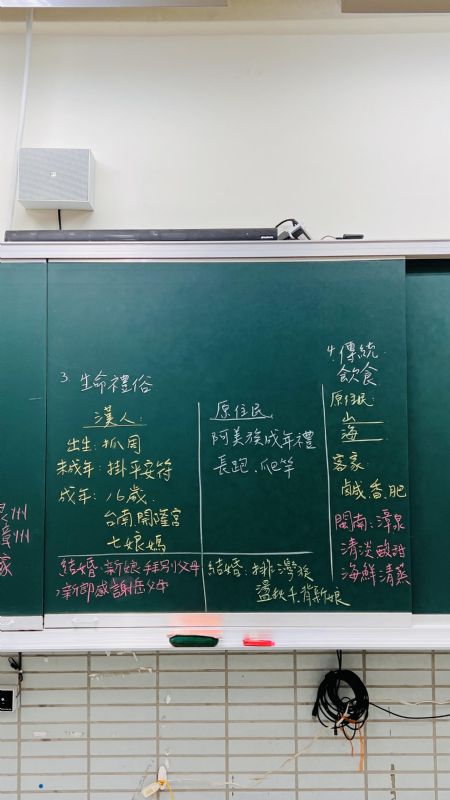 3. 生命禮俗
漢人:
出生: 抓周
未成年: 掛平安符
成年: 16歲.
台南.開隆宮
七娘媽
結婚: 新娘拜別父母
新郎感謝岳父母
原住民
阿美族成年禮
長跑.爬竿
結婚: 排灣族
盪秋千.背新娘
4. 傳統
飲食
原住民:
山
海
客家:
鹹.香.肥
閩南: 漳泉
清淡酸甜
海鮮清蒸
州
漳州
家